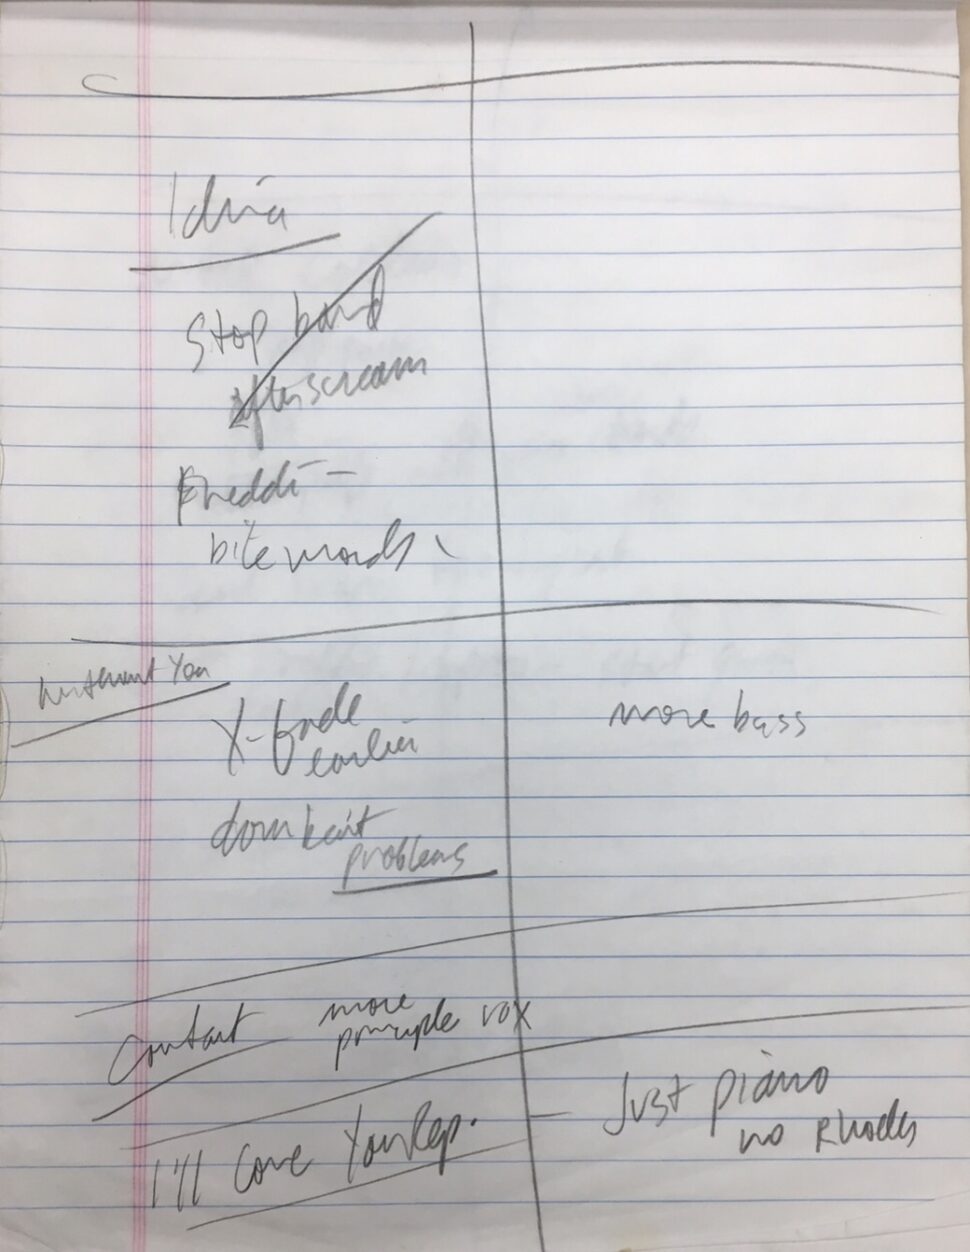 Idina
Stop band
after scream
Freddi –
bite words
Without You
X-fade
earlier
more bass
problems
Contact
more
principle vox
I'll Cove You Rep.
– Just piano
no Rhodes